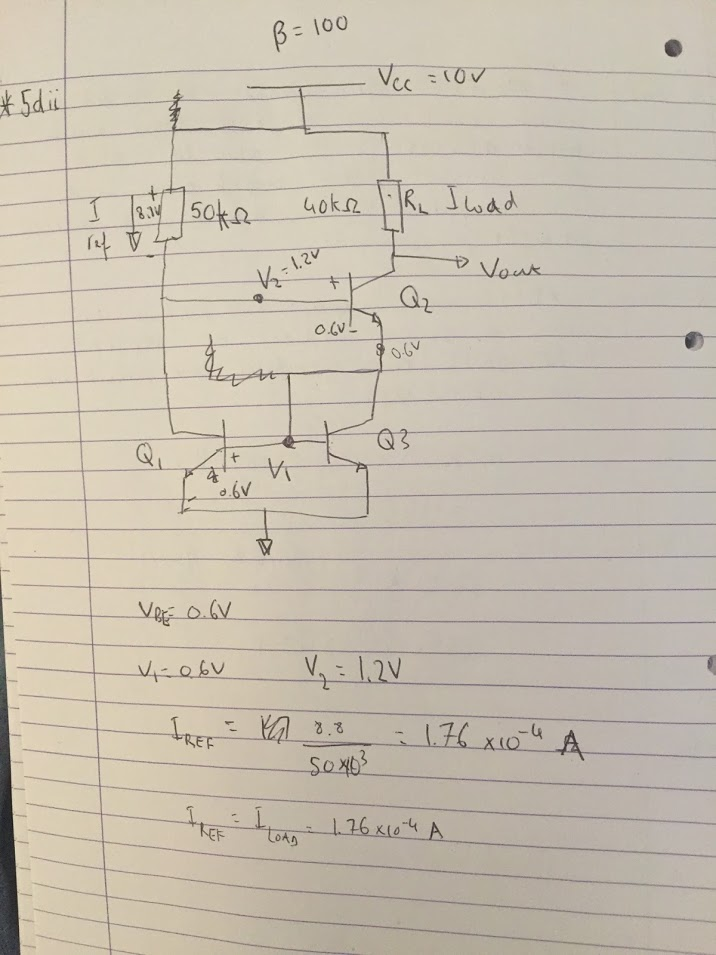 β = 100
* 5dii
Vcc = 10V
I ref
+
50kΩ
-
40kΩ
RL
I Load
V2 = 1.2V
+
Vout
Q2
0.6V-
0.6V
Q1
+
V1
Q3
- 0.6V
VBE = 0.6V
V1 = 0.6V
V2 = 1.2V
IREF = 8.8 / 50x10³ = 1.76 x10⁻⁴ A
IREF = ILOAD = 1.76 x10⁻⁴ A